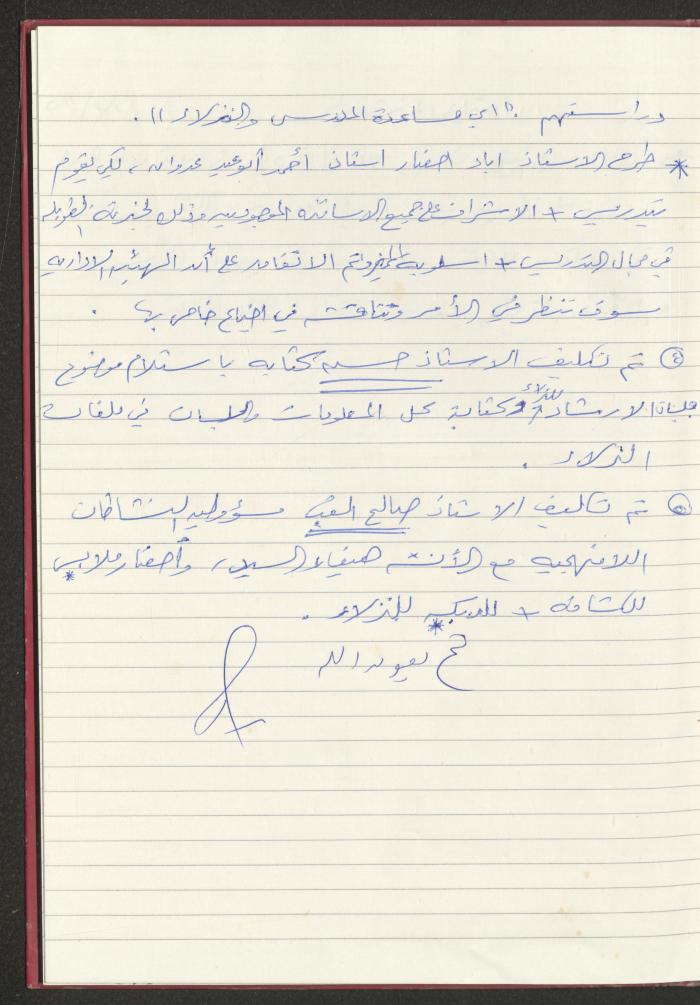 دراستهم " اي مساعدة المدرس والنزلاء )) .
* طرح الاستاذ اياد احضار استاذ أحمد أبو عيد عدوان ، لكي يقوم
بتدريس + الاشراف على جميع الاساتذه الموجودين وذلك لخبرته الطويله
في مجال التدريس + اسلوبه المميز وتم الاتفاق على أن الهيئه الاداريه
سوف تنظر في الأمر وتناقشه في اجتماع خاص بها .
④ تم تكليف الاستاذ حسن كتابه باستلام موضوع
جلسات الارشاد للنزلاء وكتابة كل المعلومات والجلسات في ملفات
النزلاء .
⑤ تم تكليف الاستاذ صالح مسؤوليه النشاطات
اللامنهجيه مع الأنسه هيفاء السيد ، وأحضار ملابس *
للكشافه + للدبكه * للنزلاء .
تم بعون الله